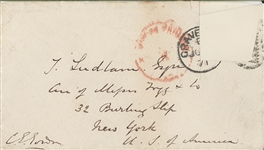 PAID
GRAVE
T. Ludlam Esqre
Care of Messrs Fogg & Co
32 Burling Slip
New York
U. S. of America